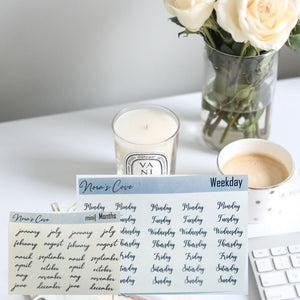 VA
NI
Nora's Cove Weekday
Monday Monday Monday Monday Monday
Tuesday Tuesday Tuesday
Wednesday Wednesday Wednesday
Thursday Thursday Thursday
Friday Friday Friday
Saturday Saturday Saturday
Sunday Sunday Sunday
Nora's Cove mini Months
january july january july
february august february august
march september march september
april october april october
may november may november
june december june december